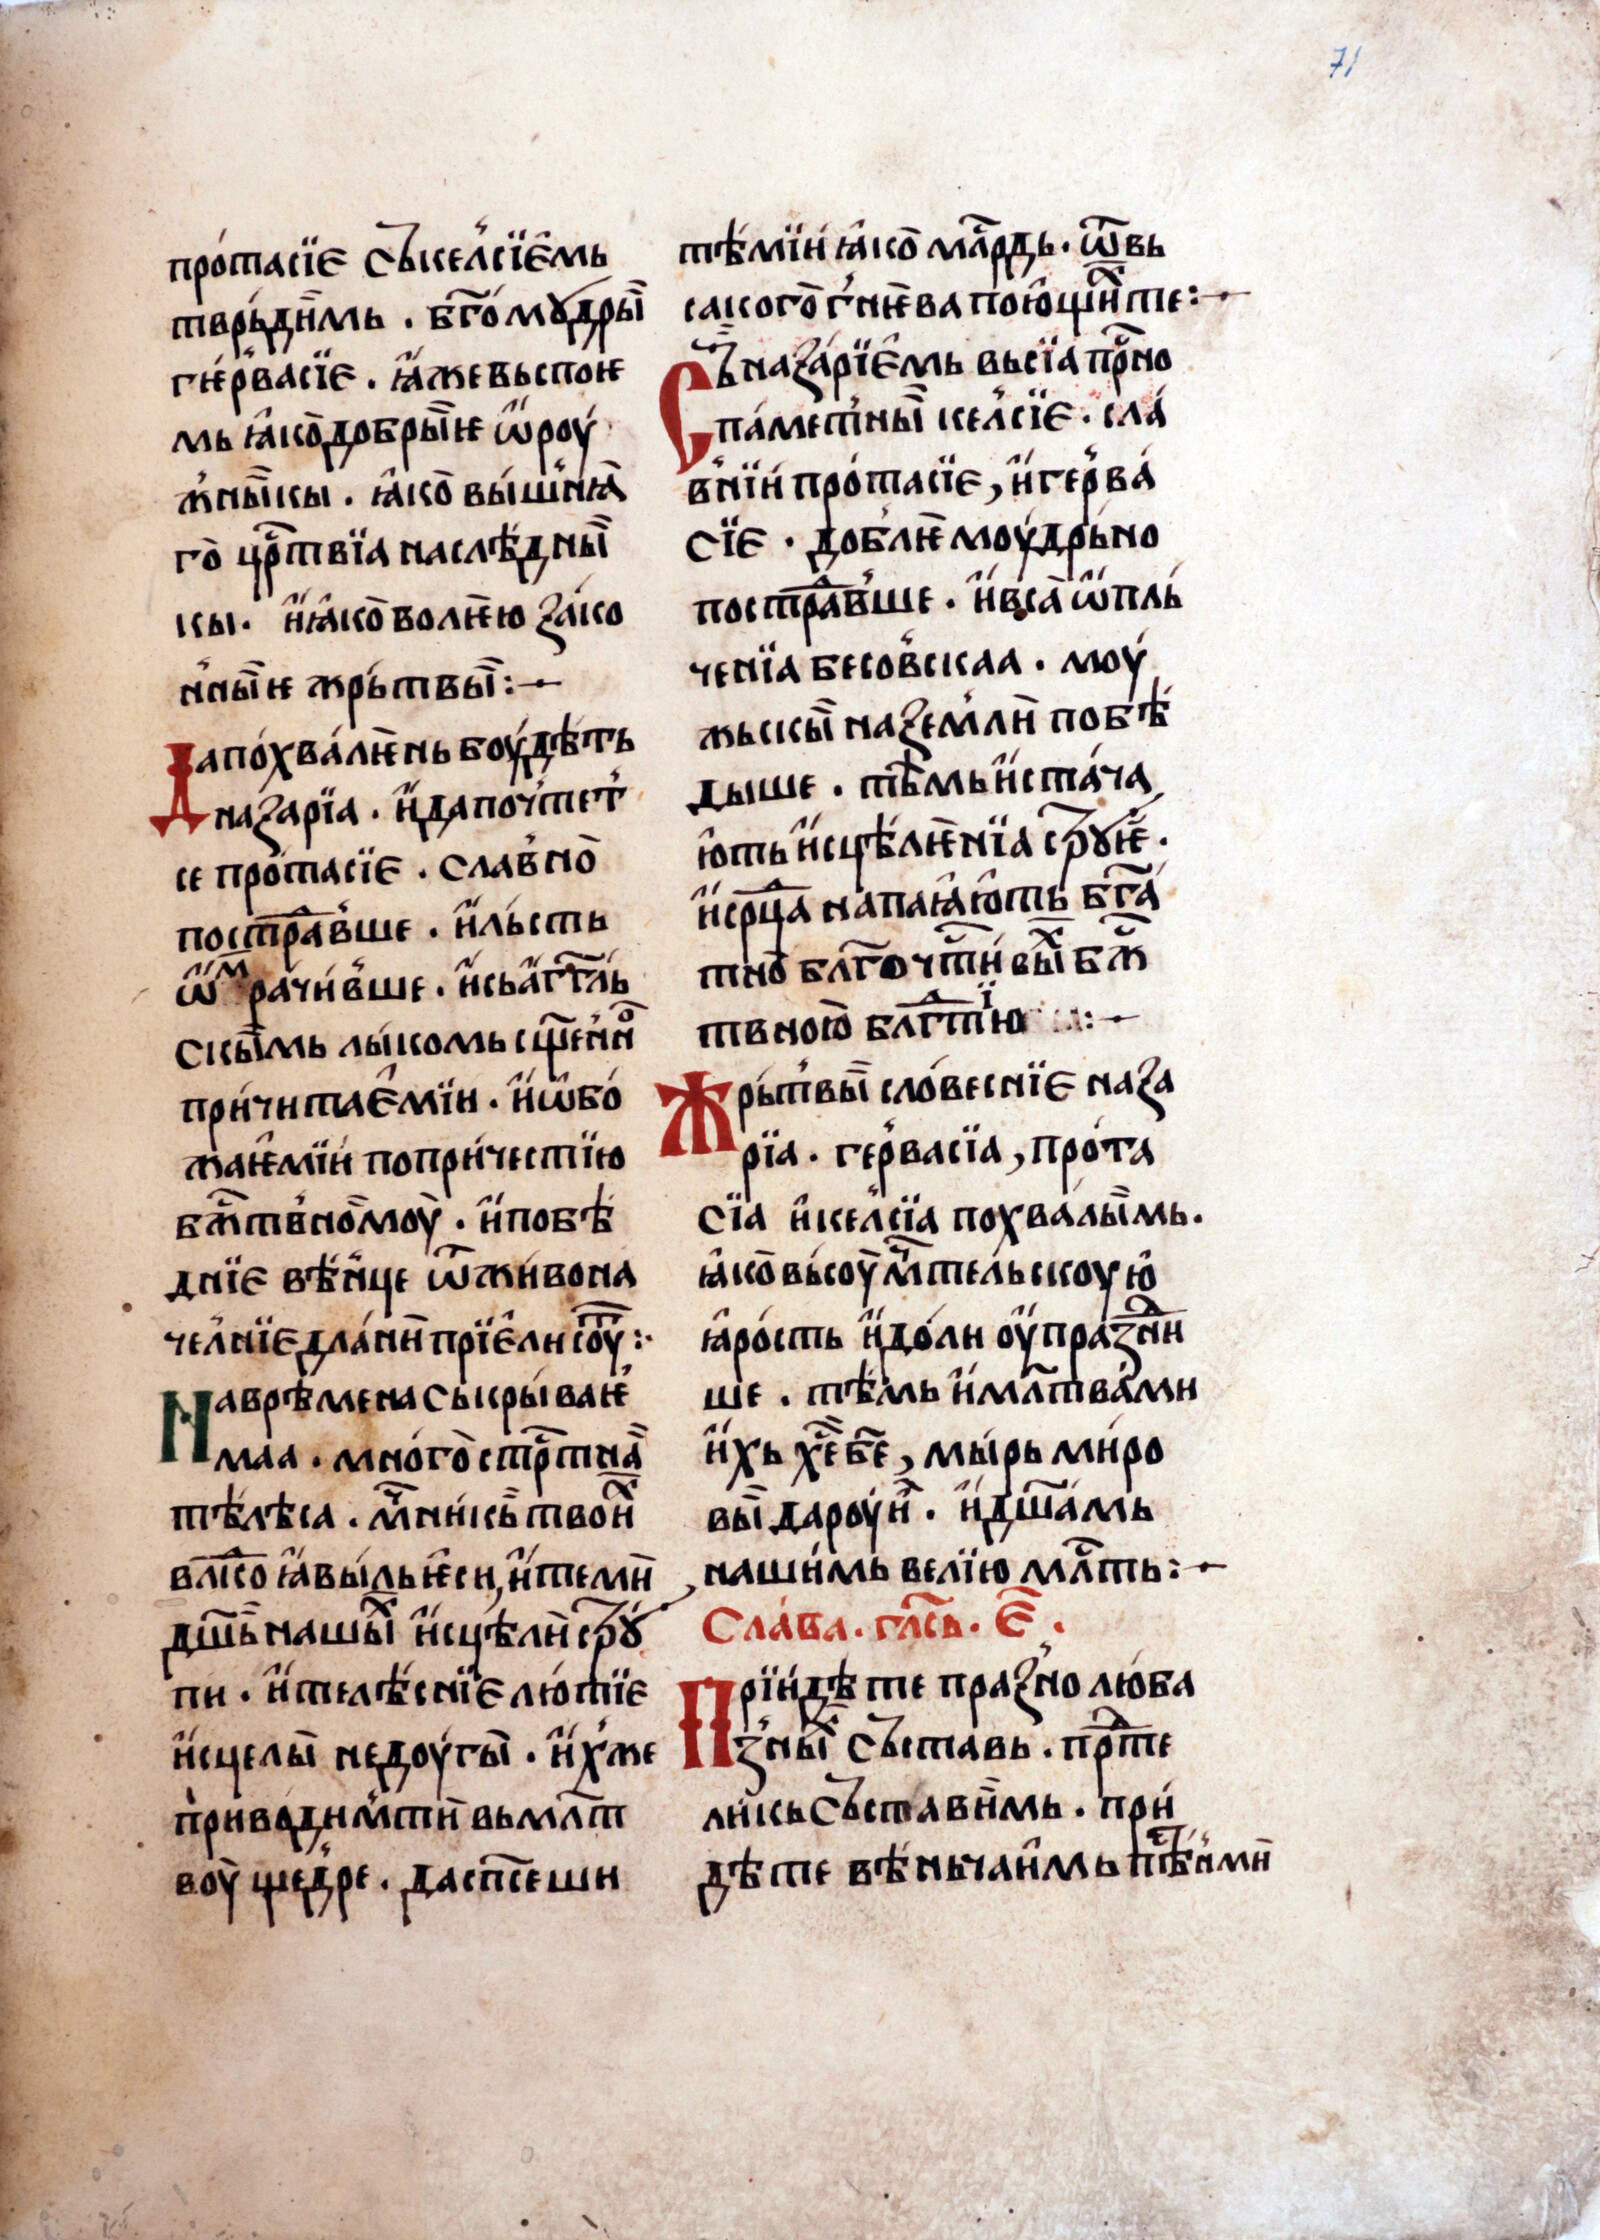 71
про́тасїѥ съкел̓сїѥ̑мь
тврь́дїимь · бг҃омꙋ́дрыи
гѥр̓васїѥ · ꙗ҆́же въспоѥ
мь ꙗ҆́ко до́брыѥ ѡ҆роу́
ж̓никы · ꙗ҆́ко вы́шнꙗ
го црⷭ҇твїа наслѣ́дни
кы · и҆ ꙗ҆́ко волѥ́ю за́ко
н̓ныѥ жрь́твы :~
Да похва́лѥнь боу́дѣть
назарїа · и҆ да почтет̓
се про́тасїѥ · слав̓но
постра̑дав̓ше · и҆ льсть
ѡ҆мра́чив̓ше · и҆ сь а҆гг҃ль
скымь лы́комь сщ҃ен̓но
при́читаѥмїи · и҆ ѡ҆бо́
жаѥмїи́ по при́чештїю
бж҃твномоу · и҆ побѣ́
днїѥ вѣн̓це ѿ живона
чел̓нїѥ дла́ни прїѥ҆ли соуть :·
На врѣмена сыкры́ваѥ́
маа · мно́го стрⷭ҇тна
тѣ́лѣса · мч҃никь твоиⷯ
влⷣко ꙗ҆ви́ль ѥ҆си, и҆ тѣми
дш҃ь нашиⷯ и҆сцѣ́ли стрꙋ́
пи · и҆ телѣ́снїѥ лю́тїѥ
и҆сцели недоу́гы · и҆х̓же
приводим̓ ти вь млт҃
воу щед̓ре · да сп҃сеши
тѣ́мїи ꙗ҆́ко млⷭ҇рдь · ѿ вь
сакого гнѥ́ва пою҆́щиⷯ те :~
Съ назарїѥ҆мь вьсїа прⷭ҇но
па́мет̓ныи кел̓сїѥ · сла́
внїи про́тасїѥ, и҆ гер̓ва́
сїѥ · доб̓лѥ моу́дрьно
постра̑дав̓ше · и҆ вса ѡ҆пль
ченїа бесов̓скаа · моу́
жьскы на зем̓ли побѣ́
дыше · тѣ́мь и҆ста́ча
ю҆ть и҆сцѣ́лѥнїа стрꙋѥ҆ ·
и҆ срⷣца напаꙗ҆ю҆ть бг҃а
тно блг҃очтⷭ҇ивыⷯ бжⷭ҇
твною блгⷣтїю :~
Жрьт̓вы сло́веснїѥ наза
рїа · гер̓васїа, про́та
сїа и҆ кел̓сїа похва́лимь ·
ꙗ҆́ко въсоу мч҃тельскоую
ꙗ҆́рость и҆ до́ли оу҆праздни
ше · тѣмь и҆ млт҃ва́ми
и҆хь хⷭ҇е бж҃е, мы́рь ми́ро
ви даро́уи · и҆ дш҃амь
нашимь велїю млⷭ҇ть :~
Сла́ва · гл҃сь · є҃ ·
Прїи́дѣте праз̓но лю́ба
з̓ныⷯ съставь · прⷣте
ликь съставимь · при́
дѣте вѣ́ньчаимь пѣⷭ҇н̓ми